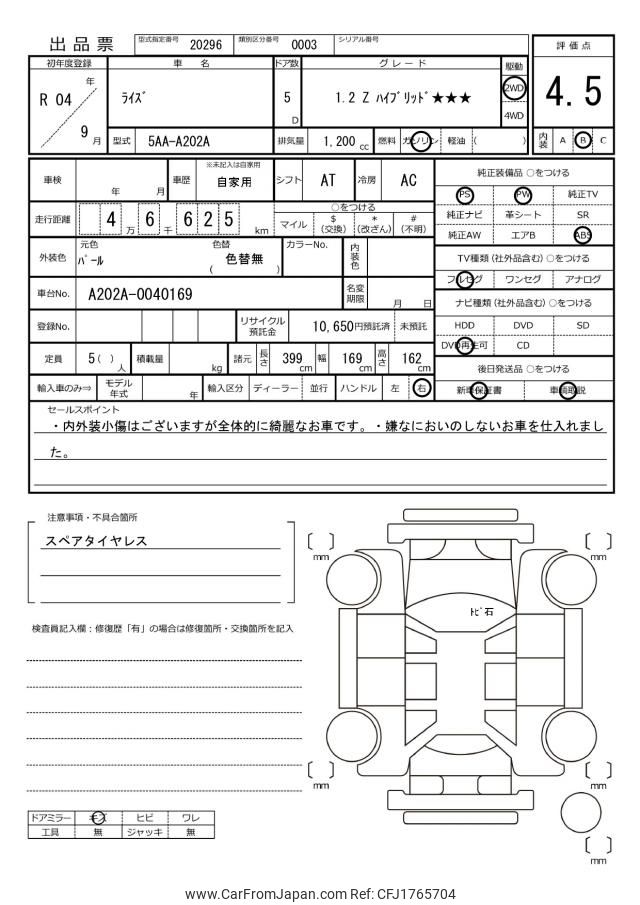 出品票
型式指定番号 20296 類別区分番号 0003 シリアル番号
評価点
4.5
初年度登録 車名 ドア数 グレード 駆動
R 04 年 9 月 ﾗｲｽﾞ 5 D 1.2 Z ﾊｲﾌﾞﾘｯﾄﾞ★★★ 2WD 4WD
型式 5AA-A202A 排気量 1,200 cc 燃料 ガソリン 軽油 ( ) 内装 A B C
車検 年 月 車歴 ※未記入は自家用 自家用 シフト AT 冷房 AC
走行距離 4 万 6 千 6 2 5 km ○をつける
マイル $ (交換) * (改ざん) # (不明)
外装色 元色 ﾊﾟｰﾙ 色替 ( 色替無 ) カラーNo. 内装色
車台No. A202A-0040169 名変期限 月 日
登録No. リサイクル預託金 10,650円預託済 未預託
定員 5 ( ) 人 積載量 kg 諸元 長さ 399 cm 幅 169 cm 高さ 162 cm
輸入車のみ⇒ モデル年式 年 輸入区分 ディーラー 並行 ハンドル 左 右
純正装備品 ○をつける
PS PW 純正TV
純正ナビ 革シート SR
純正AW エアB ABS
TV種類(社外品含む) ○をつける
フルセグ ワンセグ アナログ
ナビ種類(社外品含む) ○をつける
HDD DVD SD
DVD再生可 CD
後日発送品 ○をつける
新車保証書 車輌取説
セールスポイント
・内外装小傷はございますが全体的に綺麗なお車です。・嫌なにおいのしないお車を仕入れまし
た。
注意事項・不具合箇所
スペアタイヤレス
検査員記入欄：修復歴「有」の場合は修復箇所・交換箇所を記入
〔 〕 mm
〔 〕 mm
ﾄﾋﾞ石
〔 〕 mm
〔 〕 mm
〔 〕 mm
ドアミラー キズ ヒビ ワレ
工具 無 ジャッキ 無
www.CarFromJapan.com Ref: CFJ1765704